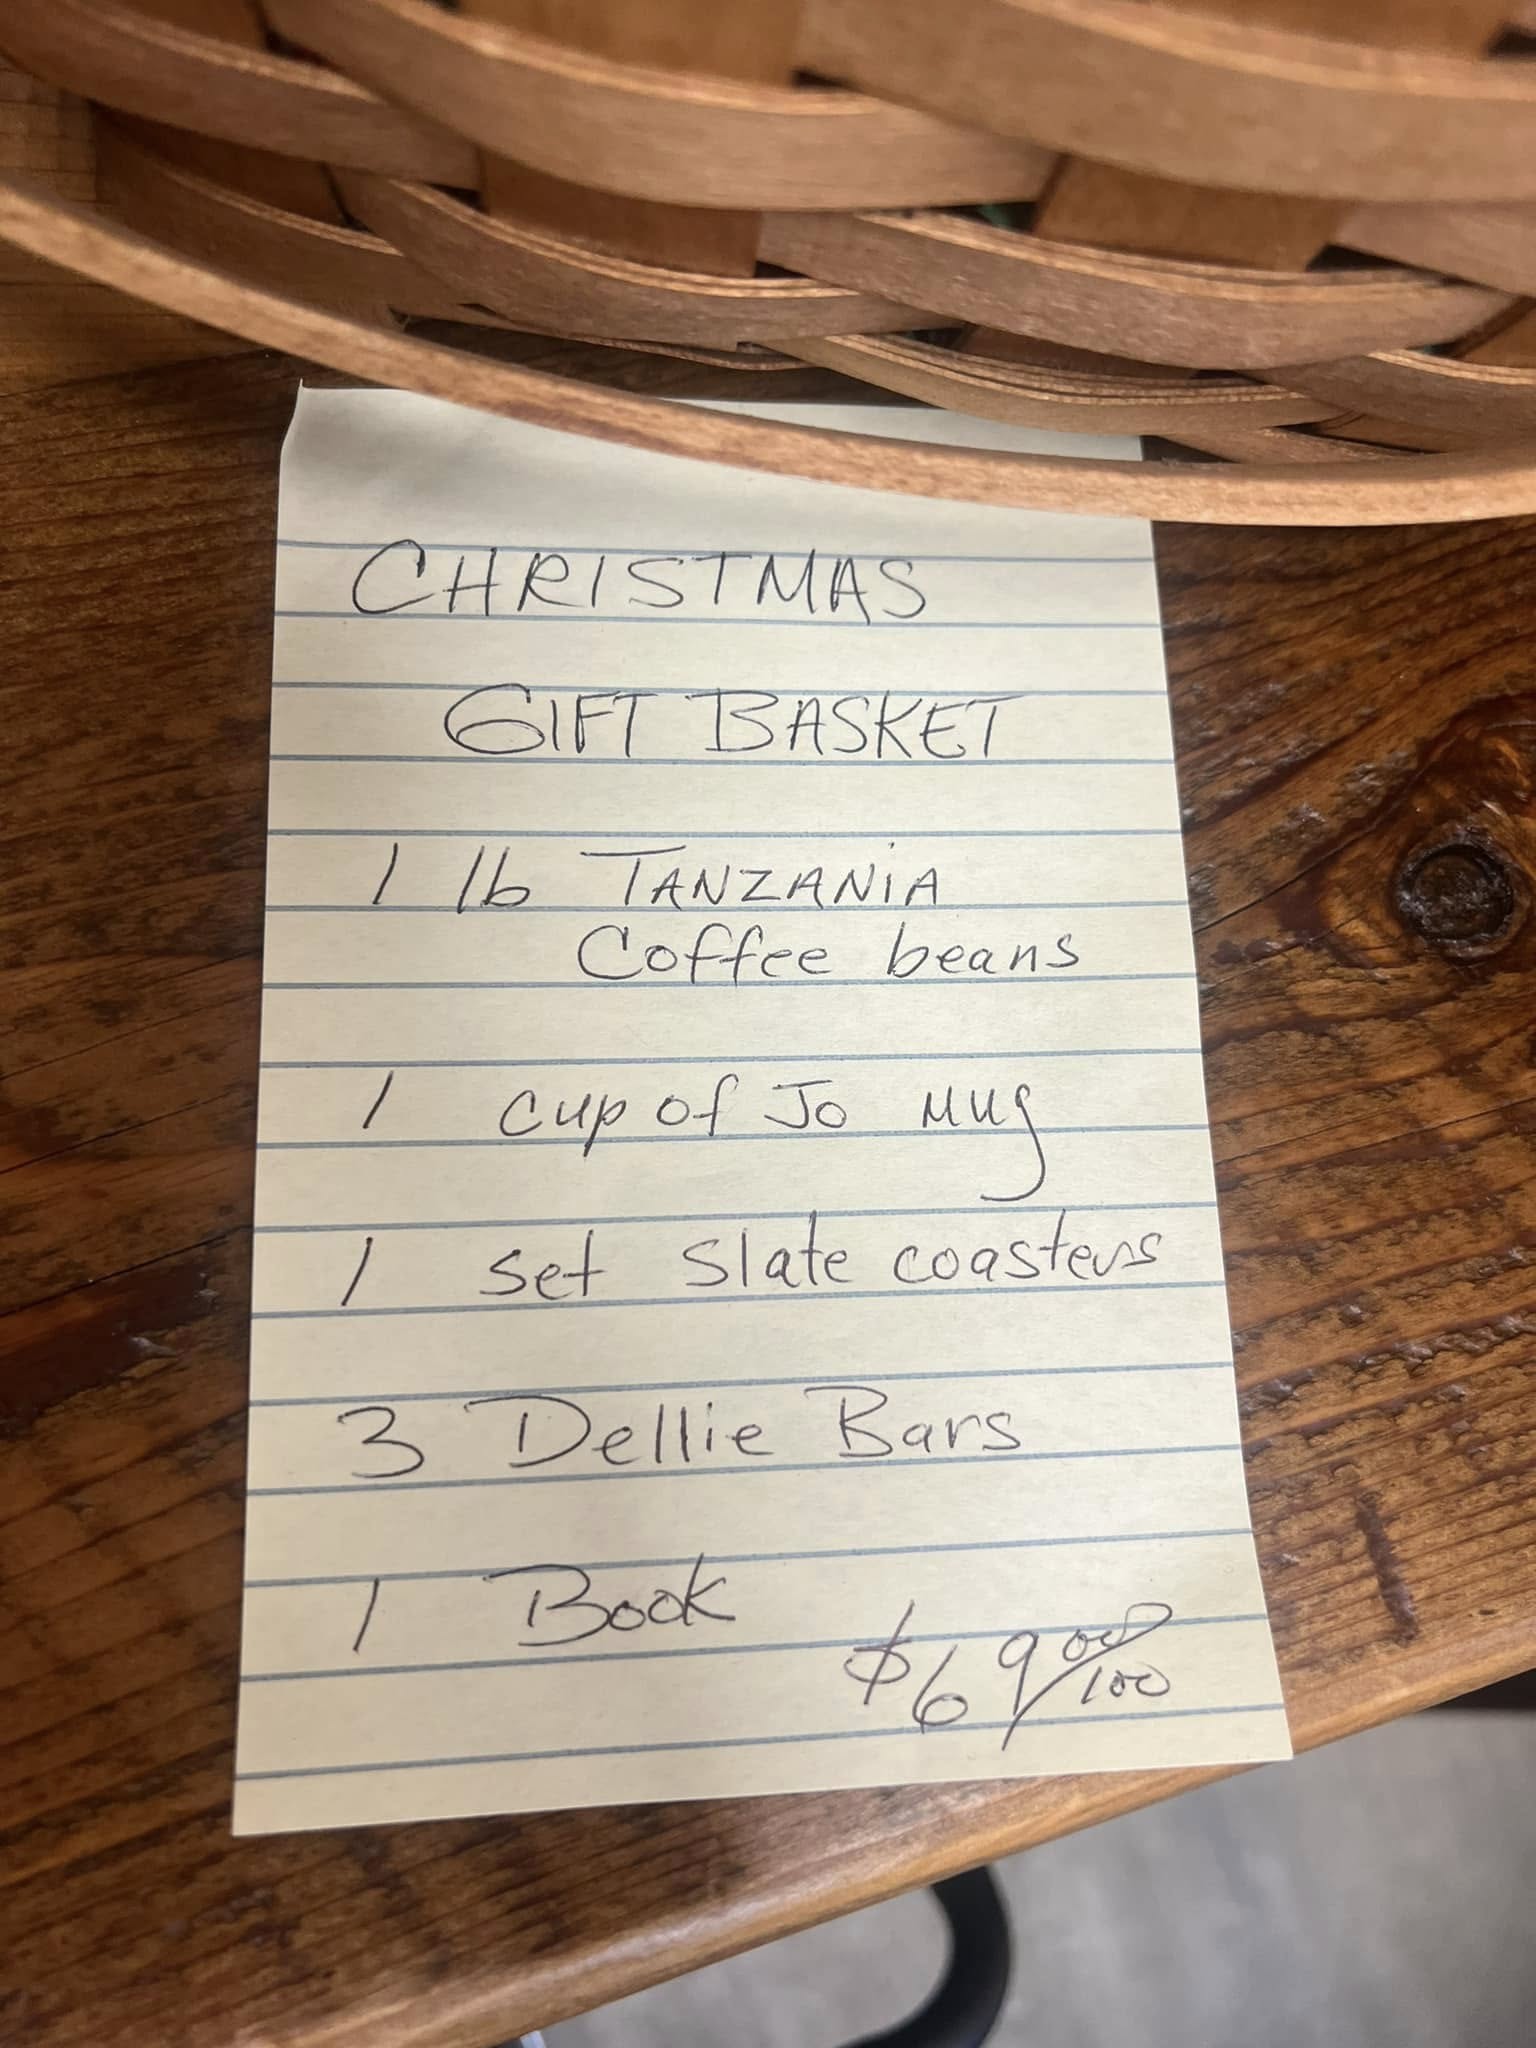 CHRISTMAS
GIFT BASKET
1 lb TANZANIA
Coffee beans
1 cup of Jo Mug
1 set slate coasters
3 Dellie Bars
1 Book
$69 00/100